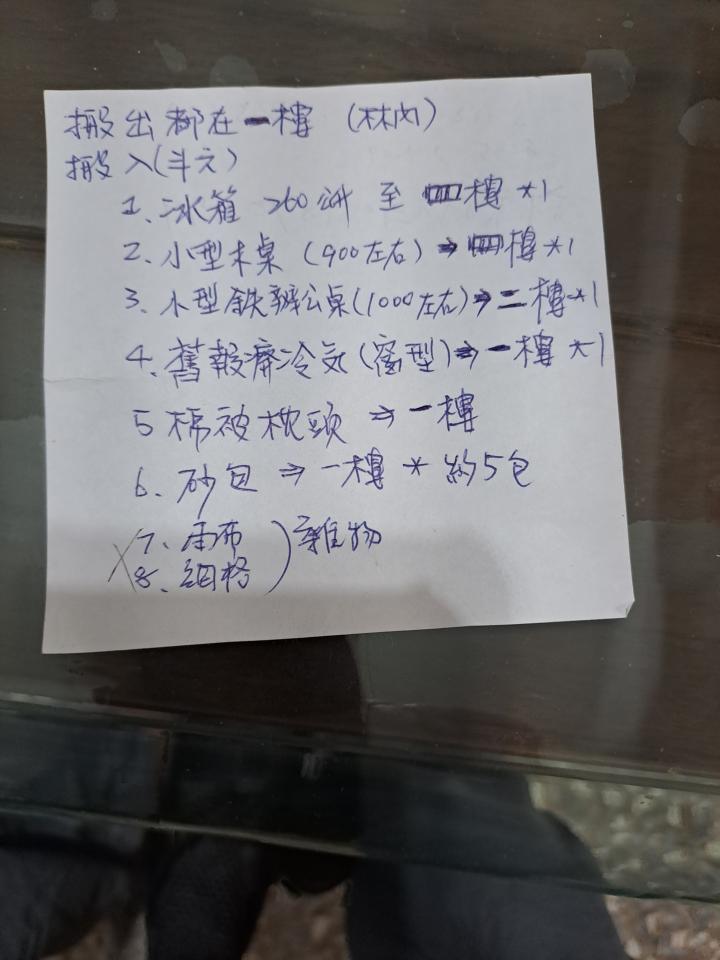 搬出都在一樓 (林內)
搬入(斗六)
1、冰箱 260公升 至 四樓 *1
2、小型木桌 (900左右) ⇒ 四樓 *1
3、小型鉄辦公桌(1000左右) ⇒ 二樓 *1
4、舊報廢冷気(窗型) ⇒ 一樓 *1
5 棉被枕頭 ⇒ 一樓
6、砂包 ⇒ 一樓 * 約5包
7、雨布
8、細格
雜物